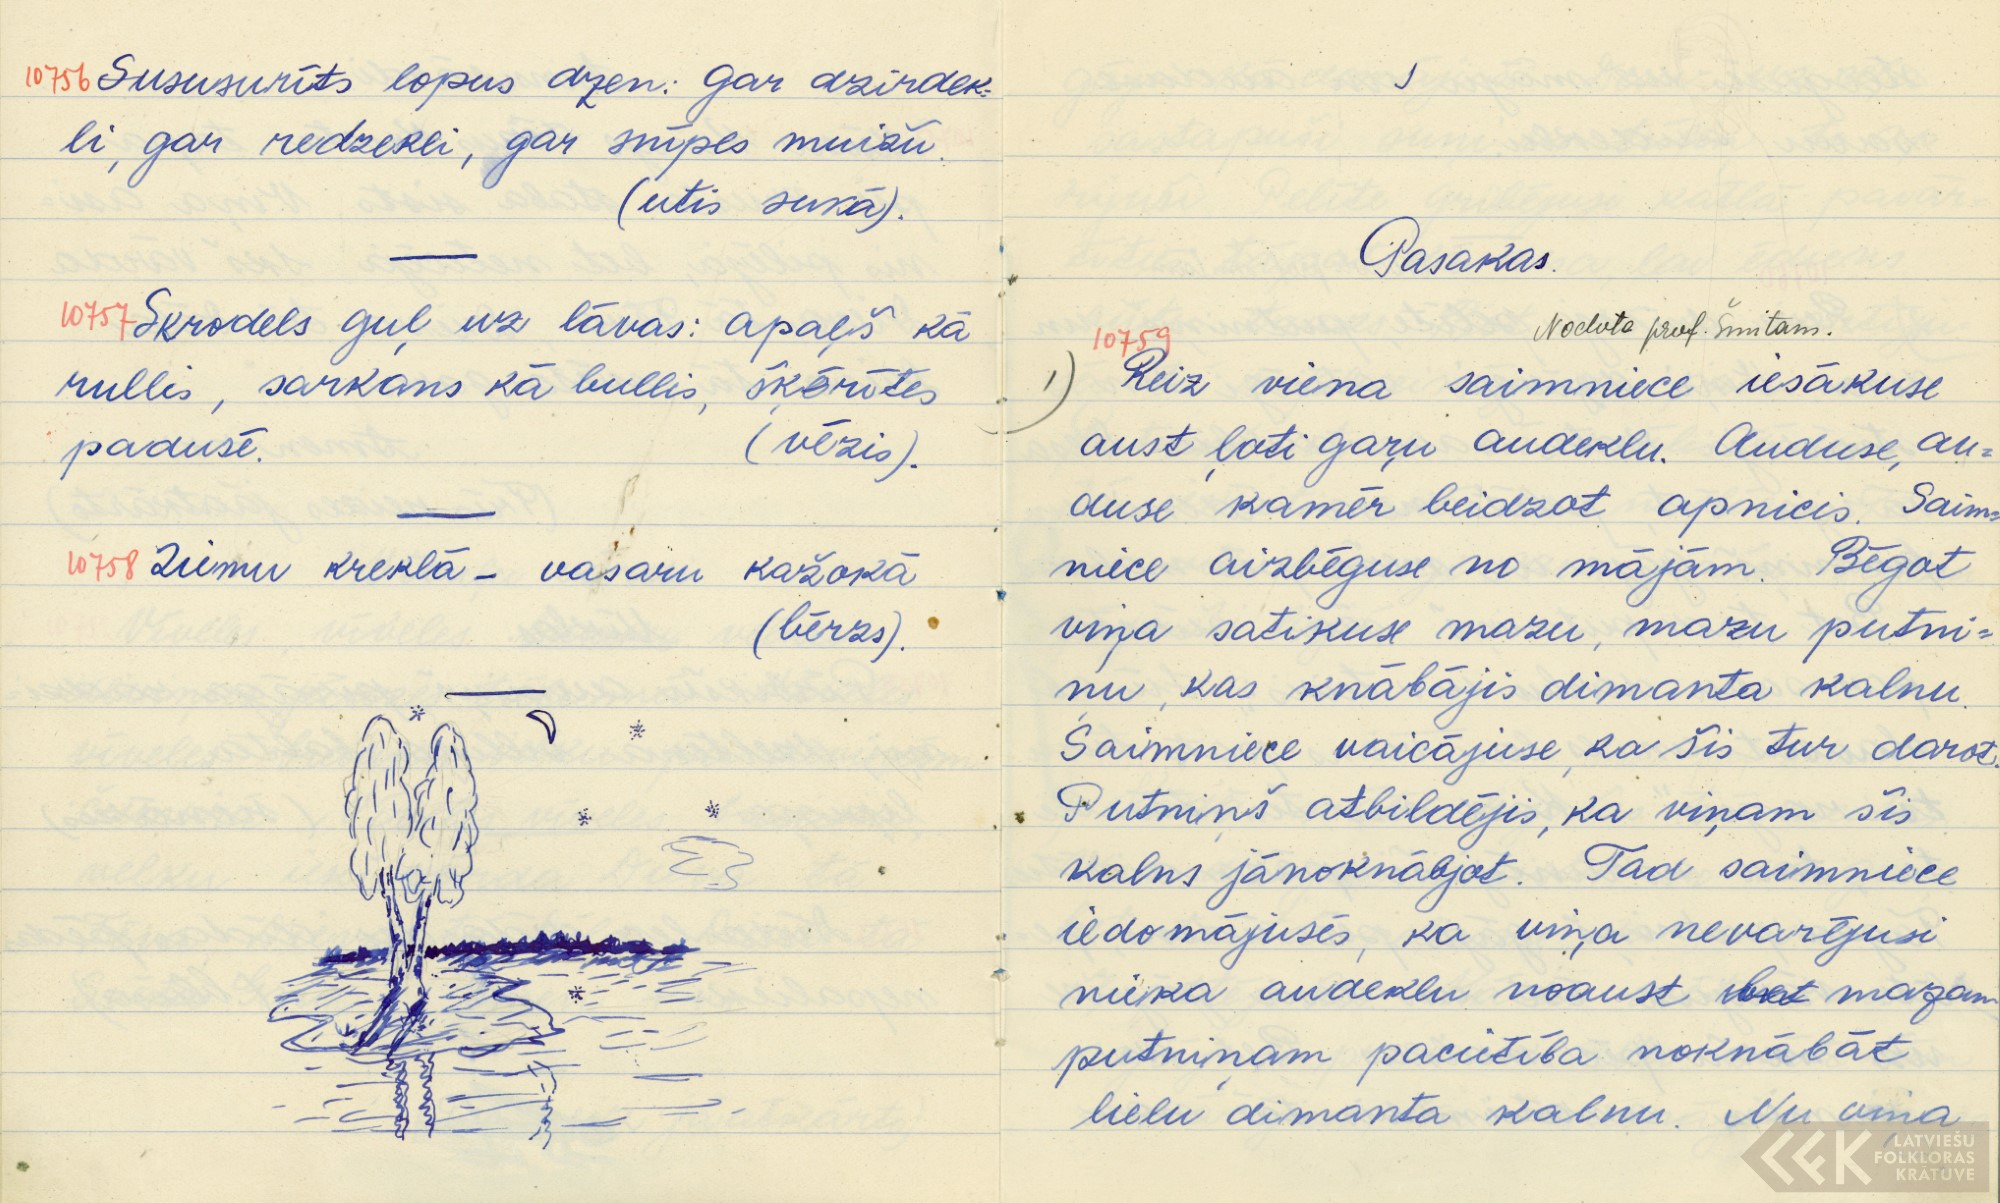 10756 Sususurīts lopus dzen: gar dzirdek=
li, gar redzekli, gar snīpes muižu.
(utis sukā).
10757 Skrodels guļ uz lāvas: apaļš kā
rullis, sarkans kā bullis, šķērītes
padusē. (vēzis).
10758 Ziemu kreklā – vasaru kažokā
(bērzs).
Pasakas.
Nodota prof. Šmitam.
10759
1) Reiz viena saimniece iesākuse
aust ļoti gaŗu audeklu. Auduse, au=
duse kamēr beidzot apnicis. Saim=
niece aizbēguse no mājām. Bēgot
viņa satikuse mazu, mazu putni=
ņu, kas knābājis dimanta kalnu.
Saimniece vaicājuse, ko šis tur darot.
Putniņš atbildējis, ka viņam šis
kalns jānoknābjot. Tad saimniece
iedomājusēs, ka viņa nevarējusi
nieka audeklu noaust bet mazam
putniņam pacietība noknābāt
lielu dimanta kalnu. Nu viņa
LATVIEŠU
FOLKLORAS
KRĀTUVE